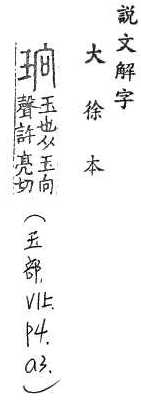 説文解字
大徐本
珦
玉也从玉向
聲許亮切
(玉部, V1上. P4. a3.)